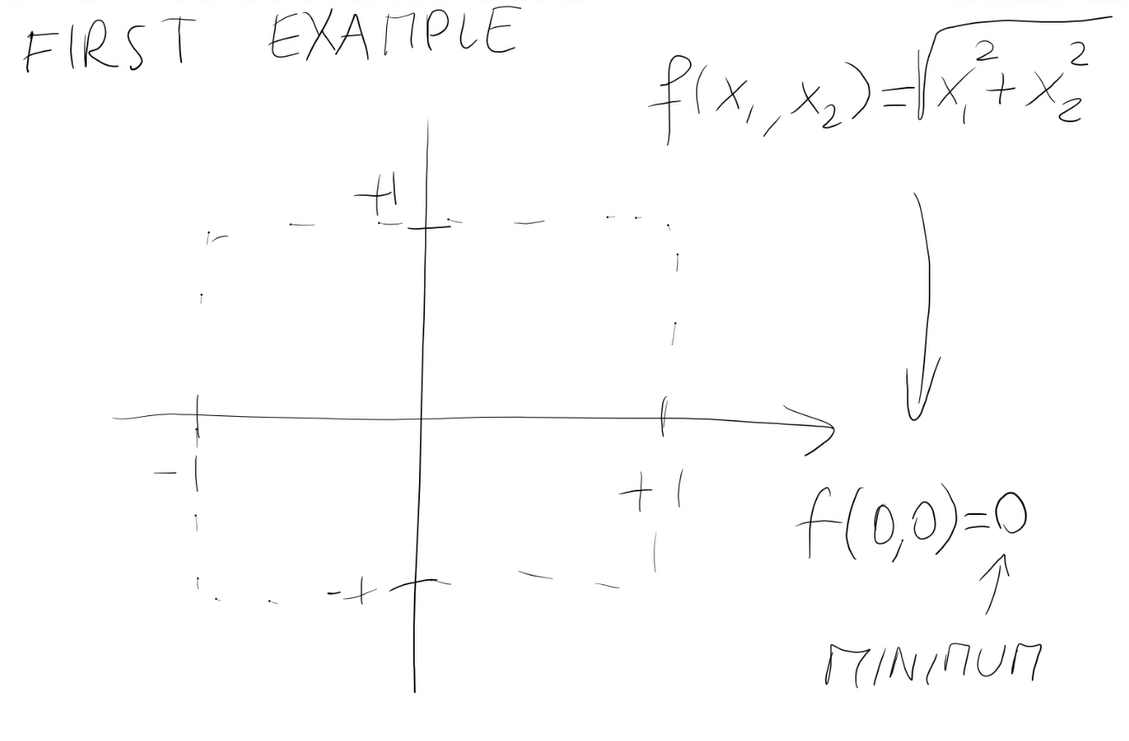 FIRST EXAMPLE
f(x₁, x₂)=√x₁²+x₂²
+1
-1
+1
f(0,0)=0
MINIMUM